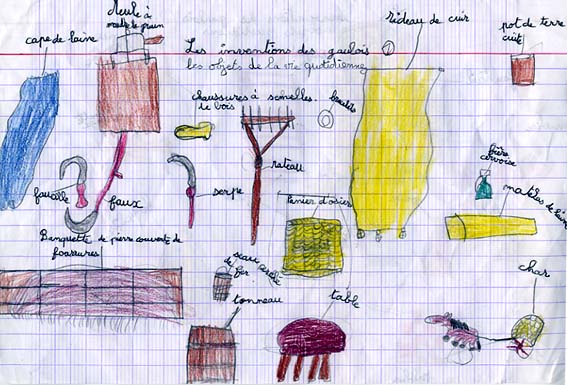 Meule à
moudre le grain
rideau de cuir
pot de terre
cuite
cape de laine
Les inventions des gaulois
les objets de la vie quotidienne
chaussures à semelles
de bois
boucle
rateau
bière
cervoise
faucille
faux
serpe
Panier d'osier
matelas de laine
Banquette de pierre couverte de
fourrures
seau cerclé
de fer
tonneau
table
char